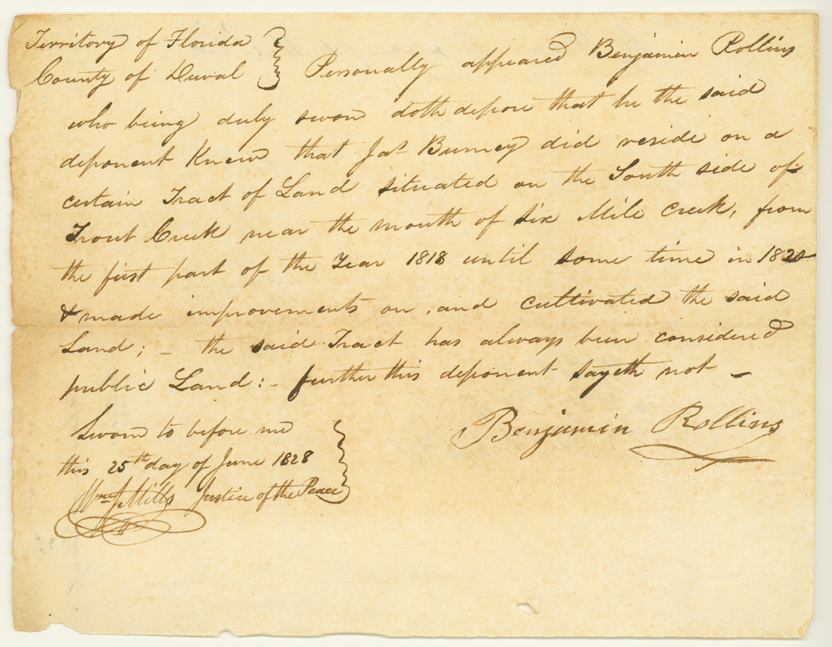 Territory of Florida
County of Duval } Personally appeared Benjamin Rollins
who being duly sworn doth depose that he the said
deponent Knew that Jas Burney did reside on a
certain Tract of Land situated on the South side of
Trout Creek near the mouth of Six Mile Creek, from
the first part of the Year 1818 until some time in 1820
& made improvements on, and cultivated the said
Land; - the said Tract has always been considered
public Land: - further this deponent sayeth not -
Sworn to before me
this 25th day of June 1828
Wm J. Mills Justice of the Peace
Benjamin Rollins